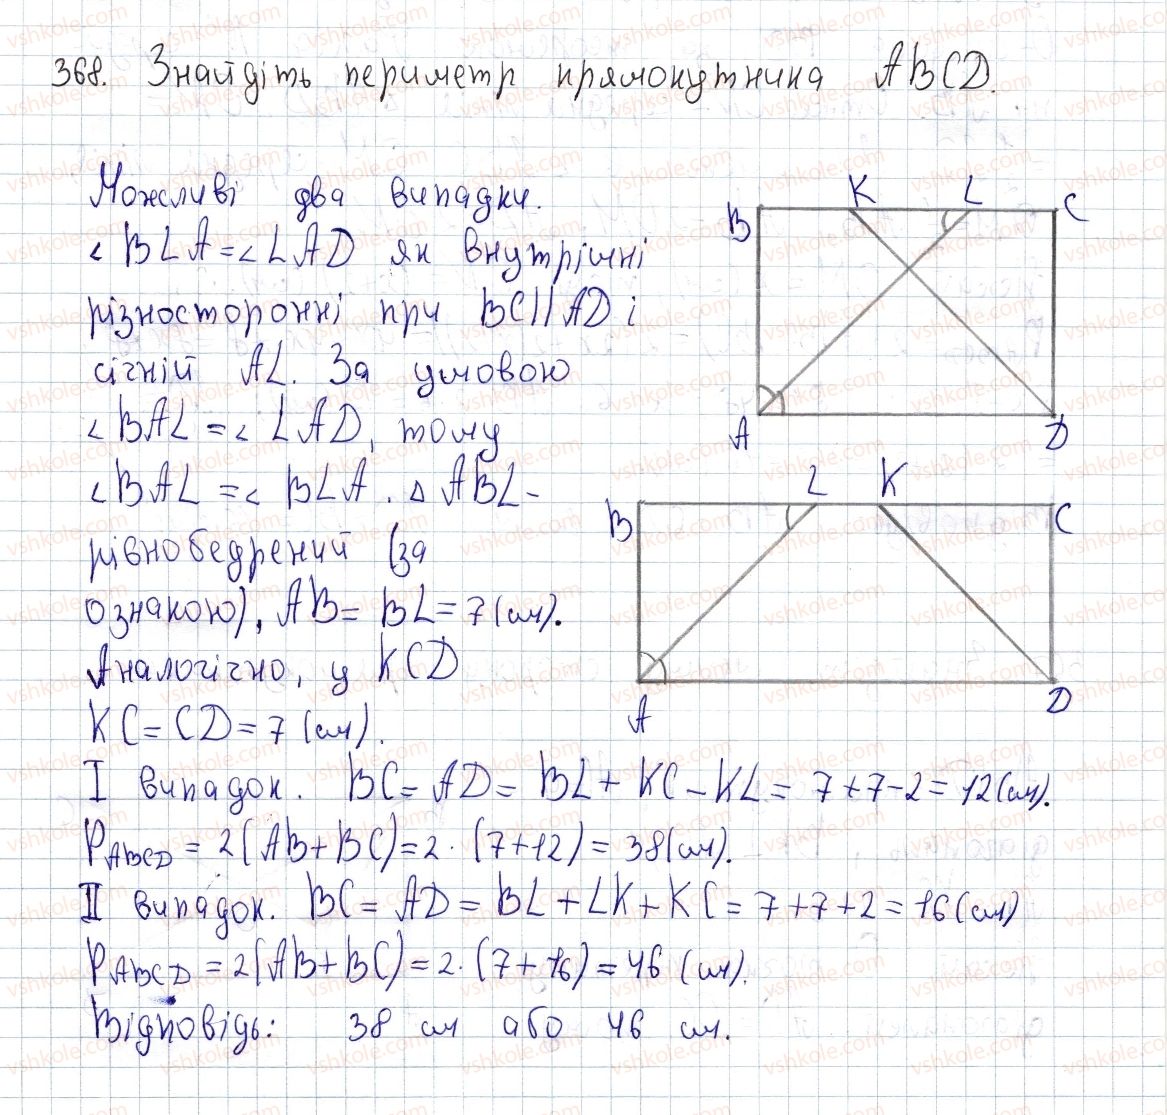 368. Знайдіть периметр прямокутника ABCD.
Можливі два випадки.
∠BLA=∠LAD як внутрішні
різносторонні при BC||AD і
січній AL. За умовою
∠BAL=∠LAD, тому
∠BAL=∠BLA. ΔABL-
рівнобедрений (за
ознакою), AB=BL=7(см).
Аналогічно, у KCD
KC=CD=7(см).
I випадок. BC=AD=BL+KC-KL=7+7-2=12(см).
P ABCD=2(AB+BC)=2·(7+12)=38(см).
II випадок. BC=AD=BL+LK+KC=7+7+2=16(см)
P ABCD=2(AB+BC)=2·(7+16)=46(см).
Відповідь: 38 см або 46 см.
B K L C
A D
B L K C
A D
vshkole.com